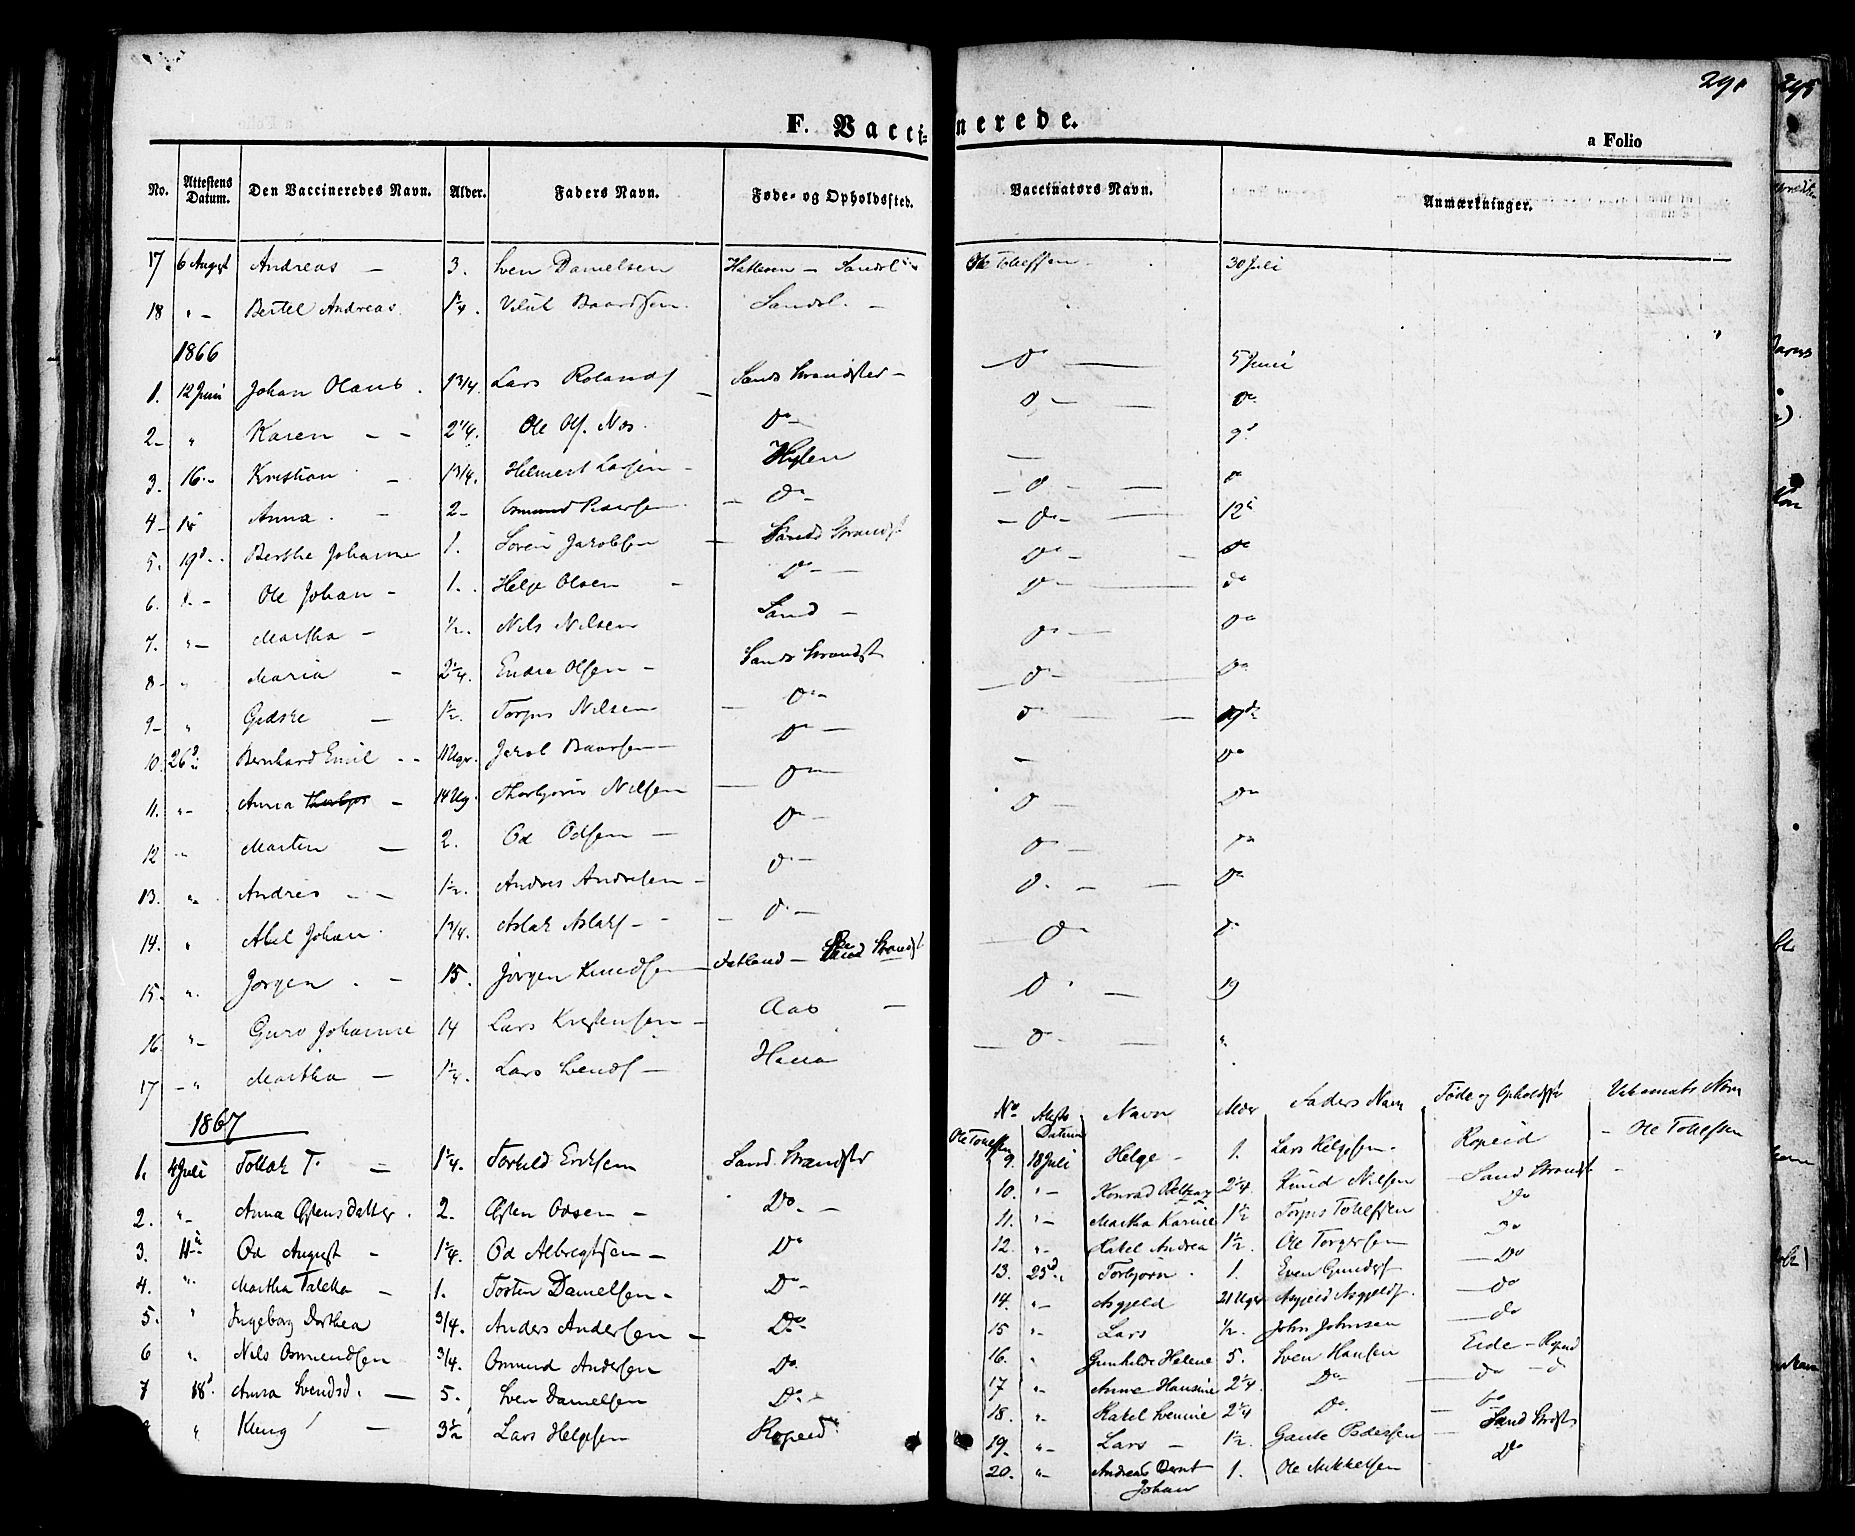 291
295
F. Vaccinerede.
a Folio
No. Attestens Datum. Den Vaccineredes Navn. Alder. Faders Navn. Føde- og Opholdssted. Vaccinators Navn. Anmærkninger.
17 6 August Andreas — 3. Sven Danielsen — Sandst Ole Tollefsen 30 Juli
18 " — Bertel Andreas 1 1/4. Baardsen Sandst. —
1866
1. 12 Juni Johan Olaus. 1 3/4. Lars Rolands Sands Strandsted — Do — 5 Juni
2 — " Karen — — 2 1/4. Ole Ols. Næs. Do — Do — Do
3. 16 — Kristian — 1 3/4. Helmert Larsen — Hylen — 9d
4 — Anna — 2 — Osmund — Do — — Do — Do
5. 19d — Berthe Johanne 1. Søren Jacobsen — Sands Strandst — Do — 12t
6. " — Ole Johan — 1. Helge Olsen — Do — Do — Do
7. " — Martha — 1/2. Nils Nilsen Sand — Do — Do
8 — " Maria — 2 1/4. Endre Olsen — Sands Strandst Do — Do
9 — " Gidske — 1 1/2. Torjus Nilsen — Do — Do — Do
10. 26d Bernhard Emil — 11 Uger. Jacob Baarsen — Do — Do —
11. " — Anna — 14 Ug. Thorbjørn Nilsen — Do — Do
12 " — Marten — 2. Od Odsen — Do — Do — Do
13. " — Andres — — 1 1/2. Andres Andresen — Do — Do — Do
14. " Abel Johan 1 3/4. Aslak Aslaks — — Do — Do — Do
15. " Jørgen — 15. Jørgen Knudsen — Fatland — Sand Strandst Do Do
16. " — Guro Johanne 14 Lars Kristensen — Aas — Do — 19
17 — " Martha — 1 1/4. Lars Svends — Hana — Do — "
1867
1. 4 Juli Tollak T. — 1 1/4. Torkild Eriksen Sand. Strandsted Ole Tollefsen
2. " — Anna Østensdatter. 2. Østen Odsen — Do —
3. 11te Od August — 1 1/4. Od Albregtsen — Do
4. " Martha Talette — 1. Tosten Danielsen — Do —
5. " Ingeborg Dorthea 3/4. Anders Andersen — Do —
6 " Nils Osmundsen 3/4. Osmund Andersen Do
7 18d Anna Svendsd. — 5. Sven Danielsen Do —
" — 3 1/2 Lars Helgesen Ropeid
No Attests Datum Navn Alder Faders Navn Føde og Opholdsst Navn
9. 18 Juli Helge — 1. Lars Helgesen — Ropeid — Ole Tollefsen
10. " — Konrad 2 1/4 Knud Nilsen — Sand Strandst —
11. " — Martha Karine 1 1/2 Torjus Tollefsen Do
12. " — Rakel Andrea 1 1/2. Ole Torgersen Do
13. 25d " Torbjørn 1. Even Gunders — Do
14. " — Asgjeld 21 Uger Asgjeld Asgjelds. — Do
15 " — Lars 1/2. John Johnsen — Do
16. " Gunhilde Helene 5. Sven Hansen Eide — Ropeid
17 " — Anne Hansine 2 1/4. Do — Do — d
18. " — Rakel Svenine 2 1/4 Do. — Do
19. " — Lars — 1 1/2. Gaute Pedersen — Sand Strandst
20. " — Andreas Bernt Johan 1. Ole Mikkelsen Do